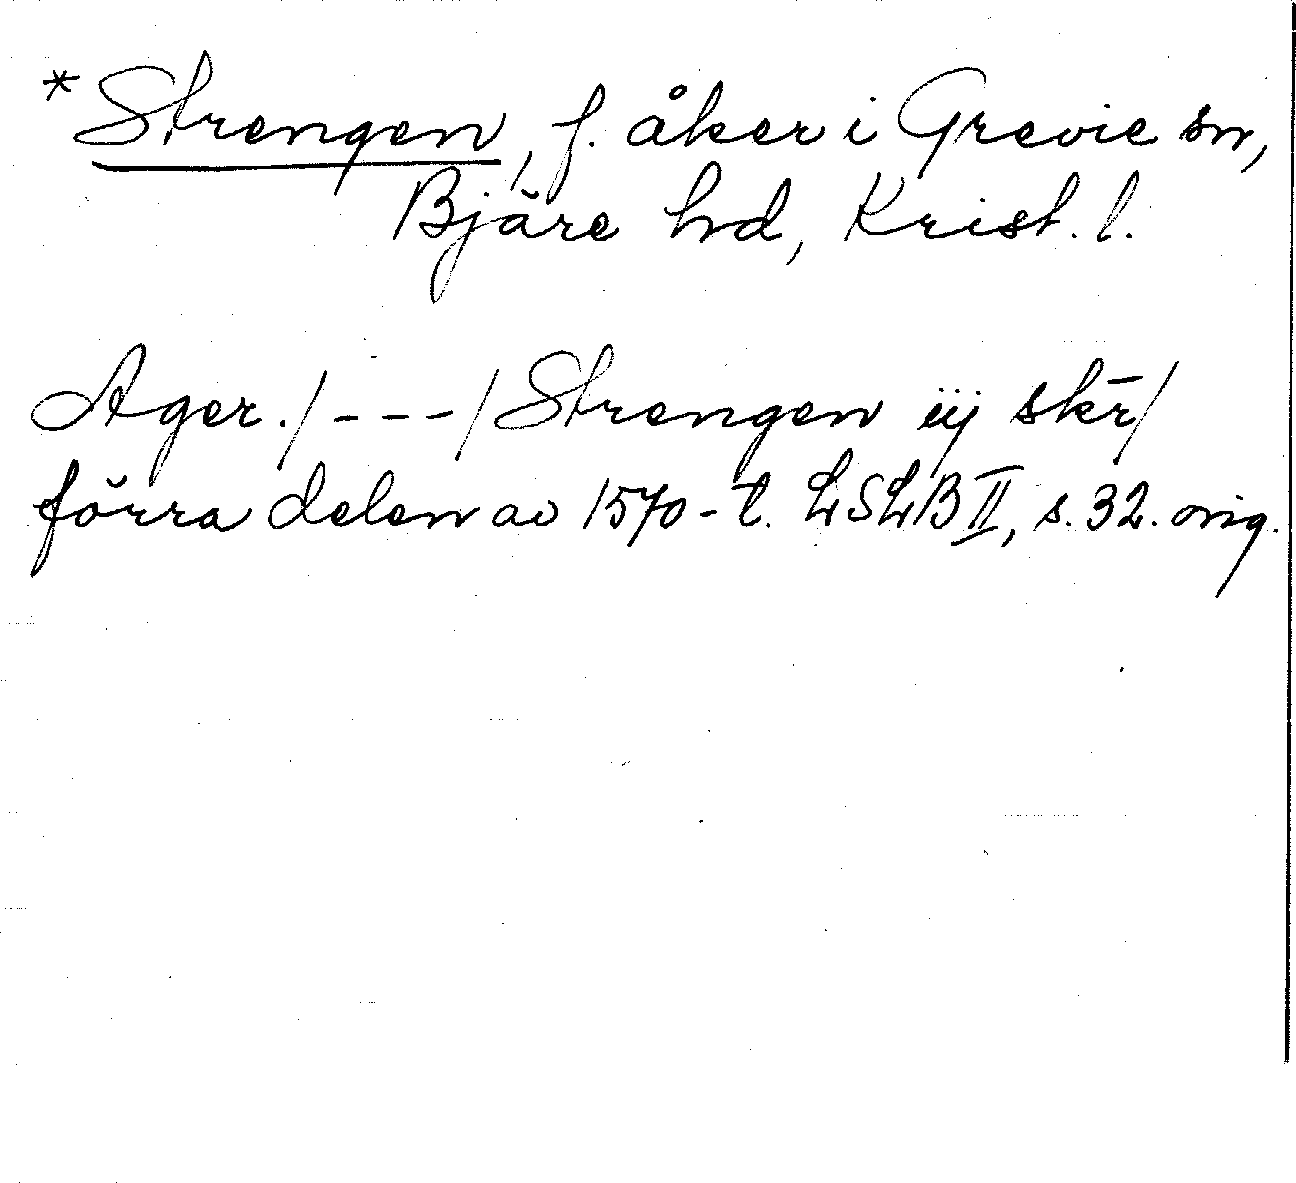 *Strengen, f. åker i Grevie sn,
Bjäre hd, Krist. l.
Ager./---/Strengen iij skr̄/
förra delen av 1570-t. LSLB II, s. 32. orig.